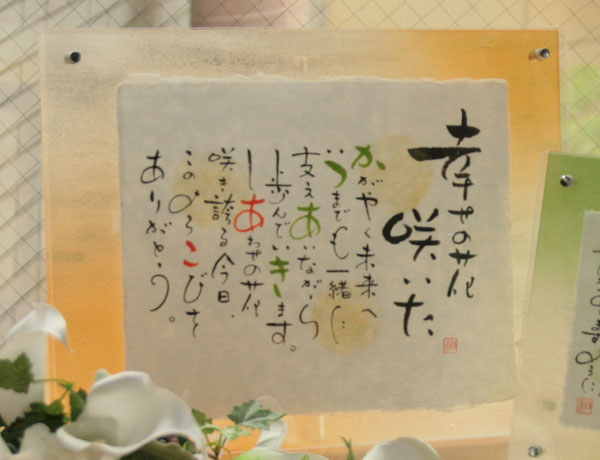 幸せの花
咲いた
かがやく未来へ
いつまでも一緒に
支えあいながら
歩んでいきます。
しあわせの花
咲き誇る今日、
このよろこびを
ありがとう。